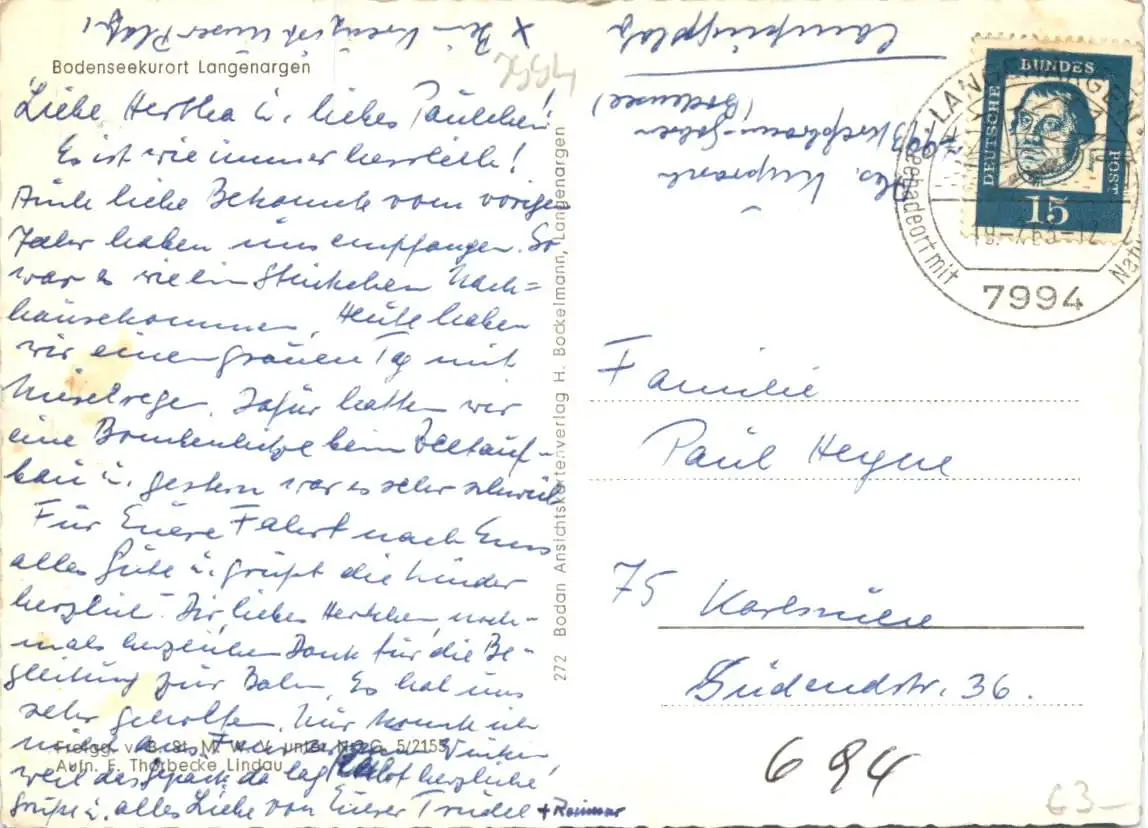 x Dein Kreuz ist unser Platz!
Bodenseekurort Langenargen
7994
Liebe Hertha u. liebes Paulchen!
Es ist wie immer herrlich!
Auch liebe Bekannte vom vorigen
Jahr haben uns empfangen. So
war es wie ein Stückchen Nach-
hausekommen. Heute haben
wir einen grauen Tag mit
Nieselregen. Dafür hatten wir
eine Bombenhitze beim Zeltauf-
bau u. gestern war es sehr schwül
Für Euere Fahrt nach Ems
alles Gute u. grüßt die Kinder
herzlich. Dir, liebes Herthchen, noch-
mals herzlichen Dank für die Be-
gleitung zur Bahn. Es hat uns
sehr geholfen. Nur konnte ich
nicht aus winken,
weil das Gepäck da lag herzliche
Grüße u. alles Liebe von Euerer Trudel + Reimar
Freigg. v. B. St. M. W. V. unter Nr. G. 5/2155
Aufn. F. Thorbecke Lindau
272 Bodan Ansichtskartenverlag H. Bockelmann, Langenargen
Campingplatz
7993 Kressbronn-Gohren
(Bodensee)
DEUTSCHE BUNDES POST
15
LANGENARGEN
Seebadeort mit
Nat
7994
Familie
Paul Heyne
75 Karlsruhe
Südendstr. 36.
694
63-